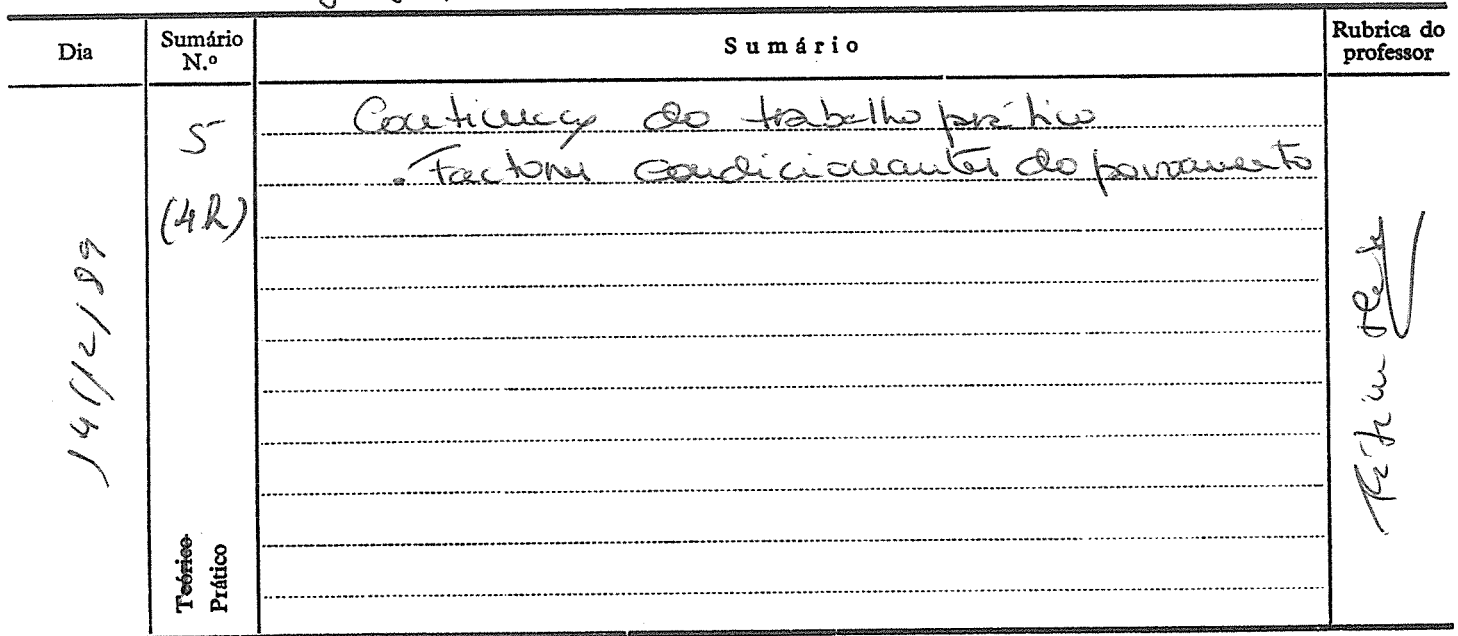 Dia
Sumário N.º
Sumário
Rubrica do professor
14/12/89
5
(4h)
Teórico
Prático
Continuação do trabalho prático
. Factores condicionantes do povoamento
Fátima